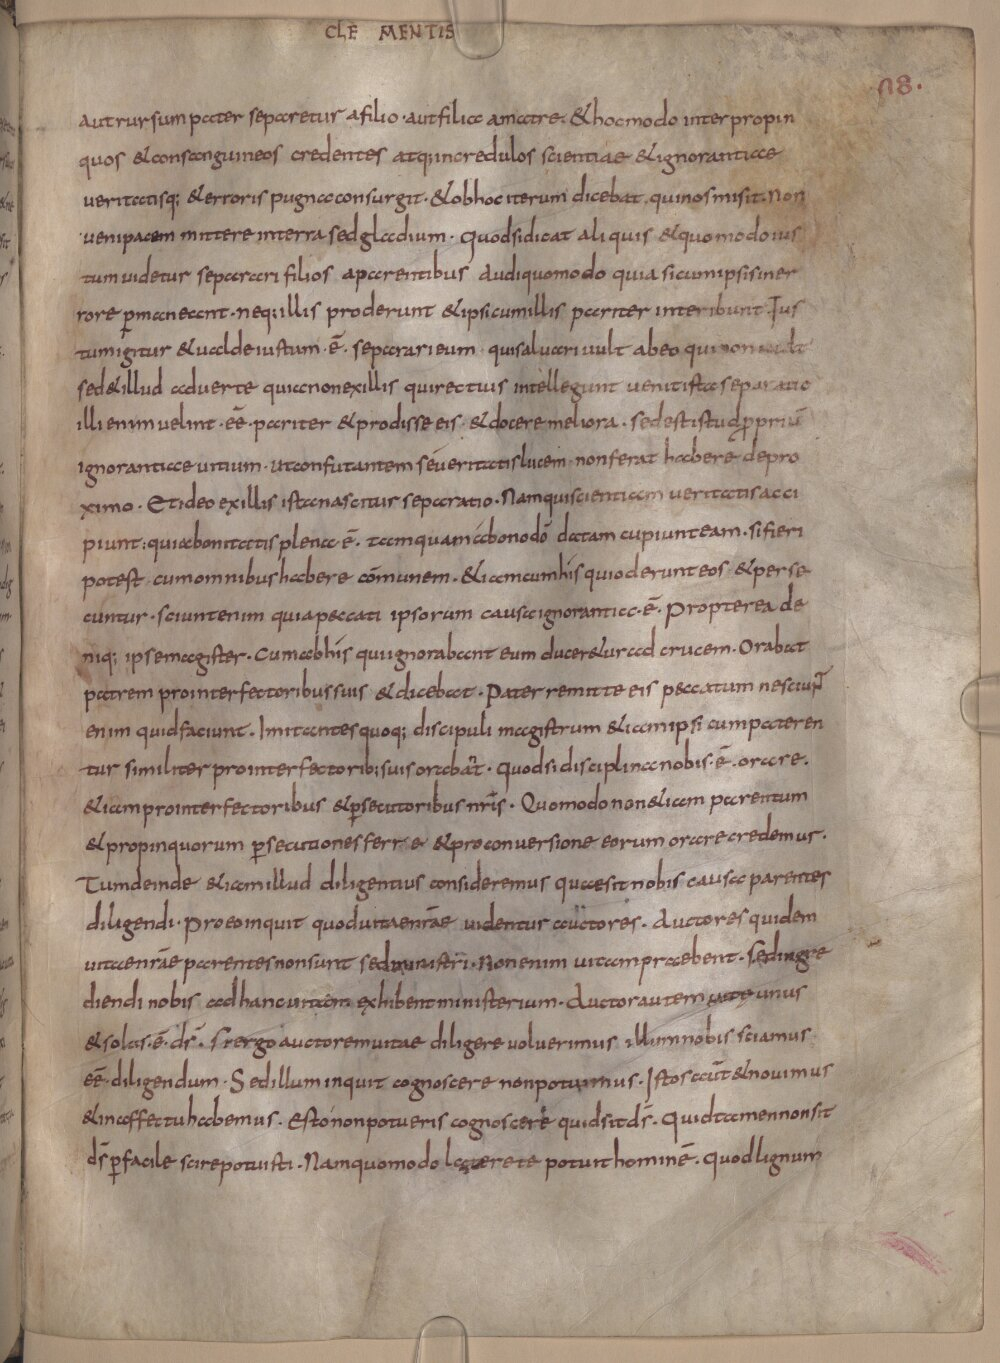 CLE MENTIS
78.
aut rursum pater separetur a filio · aut filia a matre · & hoc modo inter propin
quos & consanguineos credentes atq; incredulos scientiae & ignorantiae
veritatisq; & erroris pugna consurgit · & ob hoc iterum dicebat qui nos misit · Non
veni pacem mittere in terra sed gladium · Quod si dicat aliquis & quomodo ius
tum videtur separari filios a parentibus audi quomodo quia si cum ipsis in er
rore p̄maneant · neq; illis proderunt & ipsi cum illis pariter interibunt · Ius
tum igitur & valde iustum · ē · separari eum qui salvari vult ab eo qui non vult
sed & illud adverte quia non ex illis qui rectius intellegunt venit ista separatio
illi enim velint · eē · pariter & prodisse eis · & docere meliora · sed est istud p̄priū
ignorantiae vitium · ut confutantem se veritatis lucem non ferat habere de pro
ximo · Et ideo ex illis ista nascitur separatio · Nam qui scientiam veritatis acci
piunt : quia bonitatis plena ē · tamquam a bono dō datam cupiunt eam · si fieri
potest cum omnibus habere cōmunem · & iam cum his qui oderunt eos · & perse
cuntur · sciunt enim quia peccati ipsorum causa ignorantia · ē · Propterea de
niq; ipse magister · Cum ab his qui ignorabant eum duceretur ad crucem · Orabat
patrem pro interfectoribus suis & dicebat · Pater remitte eis peccatum nesciunt
enim quid faciunt · Imitantes quoq; discipuli magistrum & iam ipsi cum pateren
tur similiter pro interfectorib; suis orabant · Quod si disciplina nobis · ē · orare ·
& iam pro interfectoribus & p̄secutoribus nr̄is · Quomodo non & iam parentum
& propinquorum p̄secutiones ferre & pro conversione eorum orare credemus ·
Tum deinde & iam illud diligentius consideremus quae sit nobis causa parentes
diligendi · Pro eo inquit quod vitae nr̄ae videntur auctores · Auctores quidem
vitae nr̄ae parentes non sunt sed ministri · Non enim vitam praebent · Sed ingre
diendi nobis ad hanc vitam exhibent ministerium · Auctor autem vite unus
& solus · ē · ds̄ · Si ergo auctorem vitae diligere voluerimus illum nobis sciamus
eē · diligendum · Sed illum inquit cognoscere non potuimus · Istos aūt & novimus
& in affectu habemus · Esto non potueris cognoscere quid sit ds̄ · Quid tamen non sit
ds̄ p̄facile scire potuisti · Nam quomodo latere te potuit hominē · Quod lignum